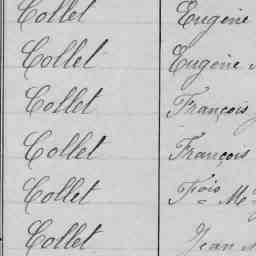 Collet Eugène
Collet Eugène
Collet François
Collet François
Collet Fçois M
Collet Jean